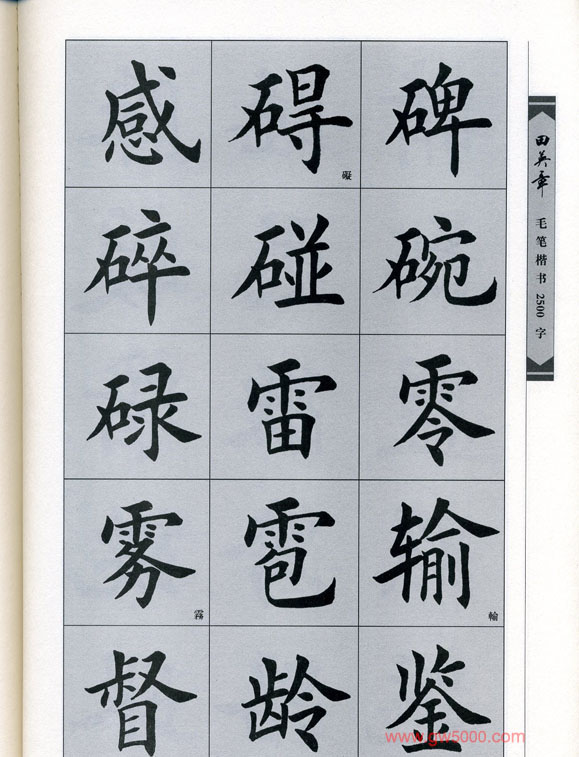 感 碍 礙 碑
碎 碰 碗
碌 雷 零
雾 霧 雹 输 輸
督 龄 鉴
田英章
毛笔楷书2500字
www.gw5000.com